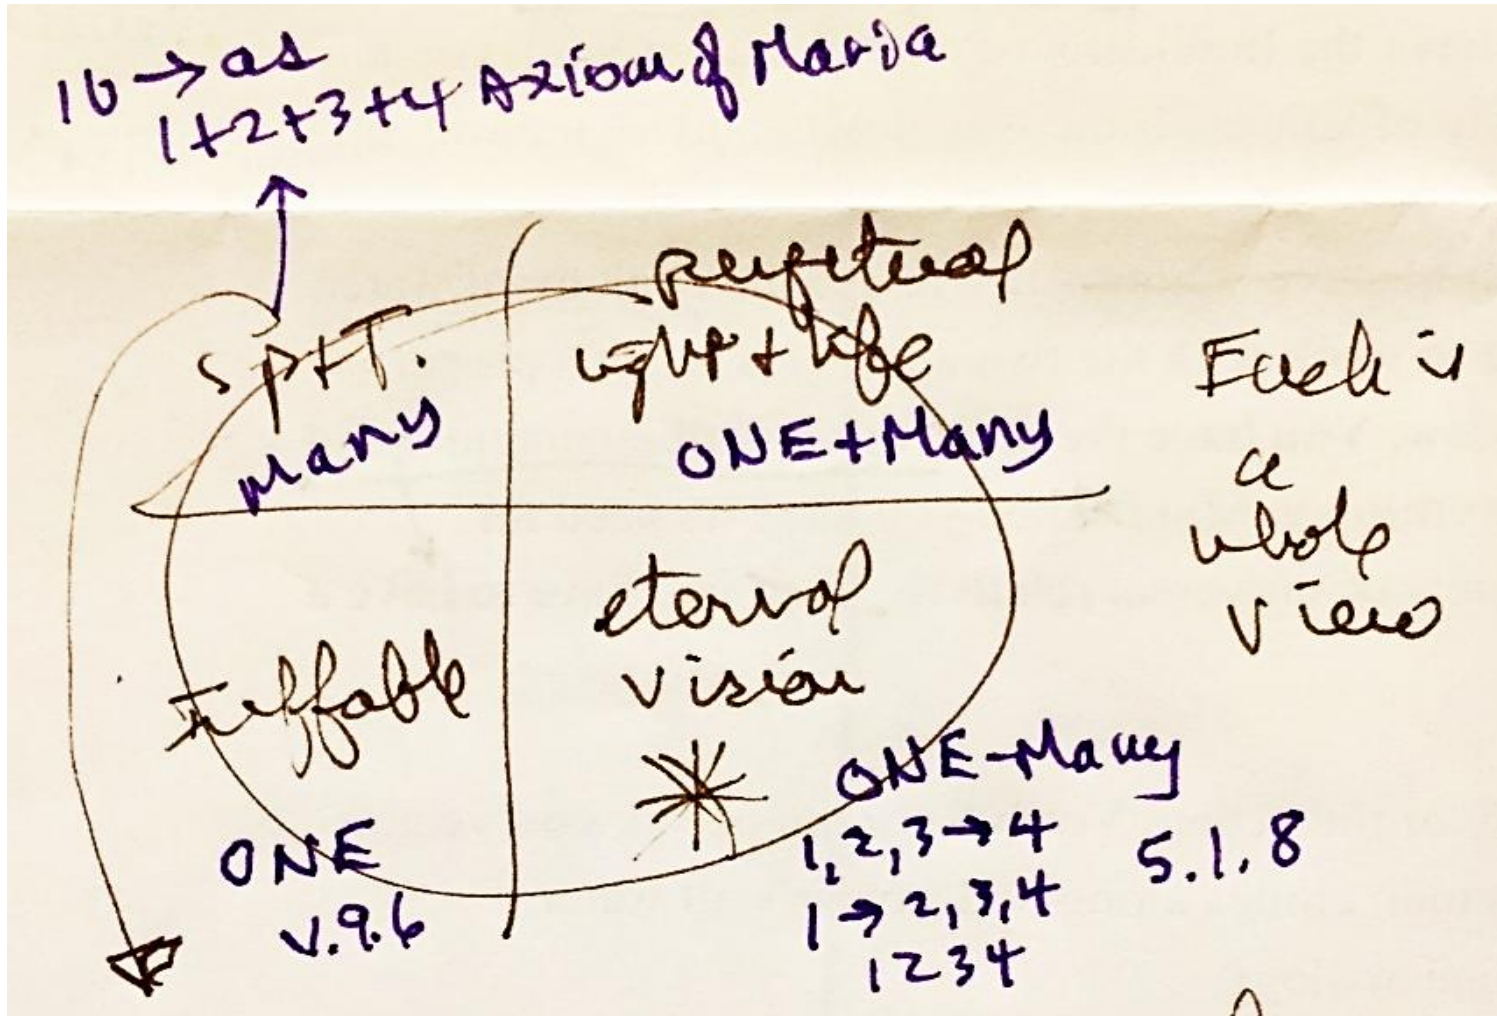 10 → as
1+2+3+4 Axiom of Maria
sp+T.
Many
perpetual
light + life
ONE+Many
Each is
a
whole
view
Ineffable
ONE
V.9.6
eternal
vision
ONE-Many
1,2,3→4
1→2,3,4
1234
5.1.8